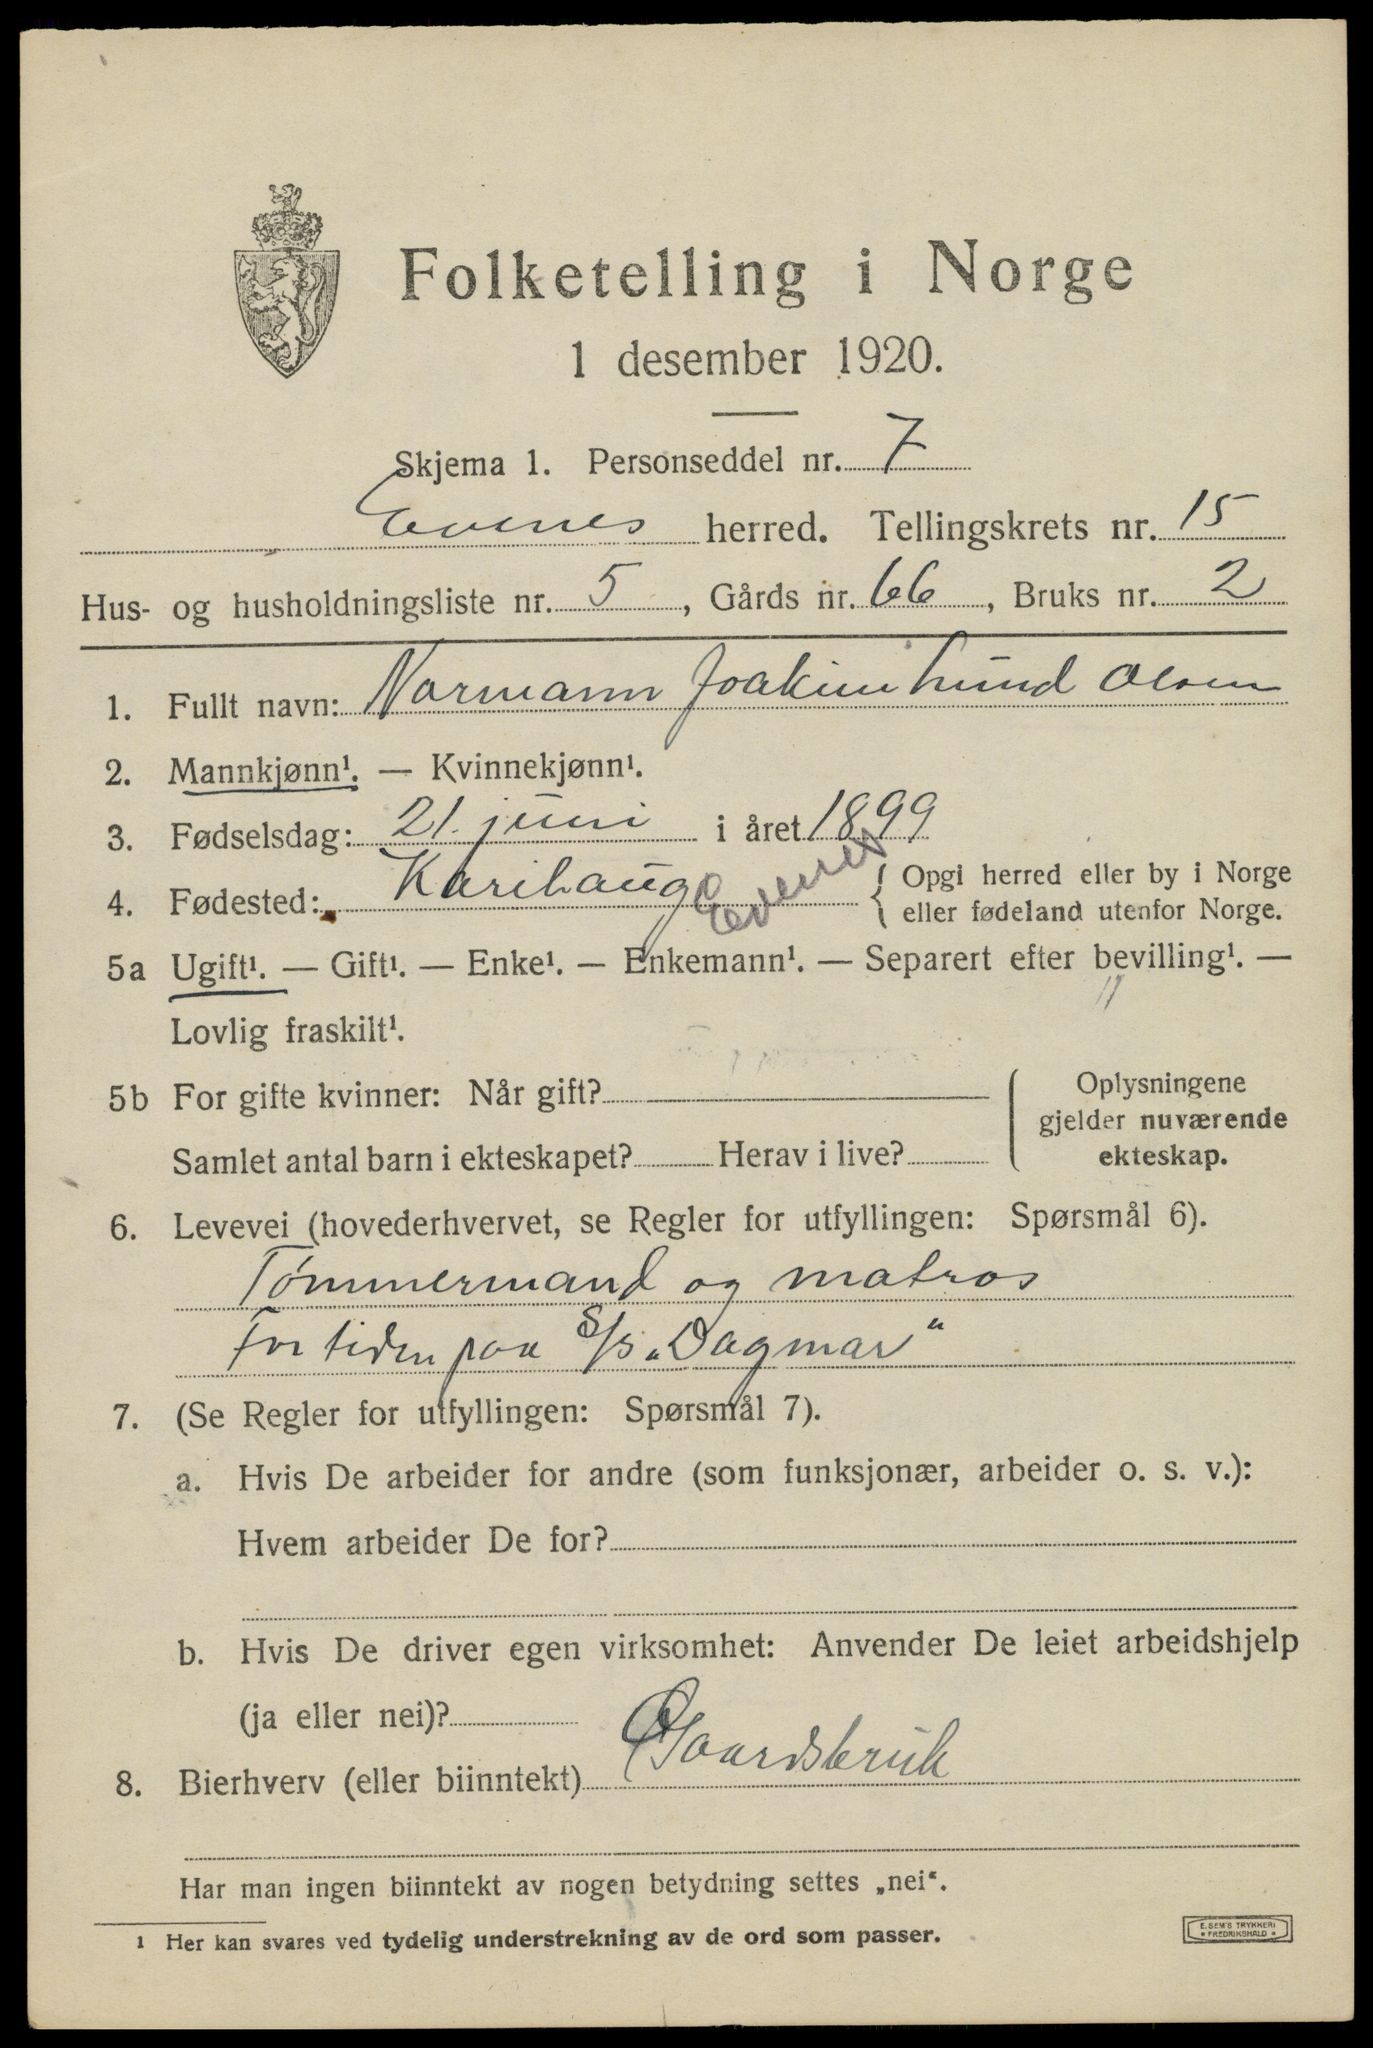 Folketelling i Norge
1 desember 1920.
Skjema 1. Personseddel nr. 7
Evenes herred. Tellingskrets nr. 15
Hus- og husholdningsliste nr. 5, Gårds nr. 66, Bruks nr. 2
1. Fullt navn: Normann Joakim Lund Olsen
2. Mannkjønn¹. — Kvinnekjønn¹.
3. Fødselsdag: 21. juni i året 1899
4. Fødested: Karihaug Evenes { Opgi herred eller by i Norge
eller fødeland utenfor Norge.
5a Ugift¹. — Gift¹. — Enke¹. — Enkemann¹. — Separert efter bevilling¹. —
Lovlig fraskilt¹.
5b For gifte kvinner: Når gift?
Samlet antal barn i ekteskapet? Herav i live?
Oplysningene
gjelder nuværende
ekteskap.
6. Levevei (hovederhvervet, se Regler for utfyllingen: Spørsmål 6).
Tømmermand og matros
For tiden paa S/S „Dagmar“
7. (Se Regler for utfyllingen: Spørsmål 7).
a. Hvis De arbeider for andre (som funksjonær, arbeider o. s. v.):
Hvem arbeider De for?
b. Hvis De driver egen virksomhet: Anvender De leiet arbeidshjelp
(ja eller nei)?
8. Bierhverv (eller biinntekt) Gaardsbruk
Har man ingen biinntekt av nogen betydning settes „nei“.
¹ Her kan svares ved tydelig understrekning av de ord som passer.
E. SEM'S TRYKKERI
* FREDRIKSHALD *